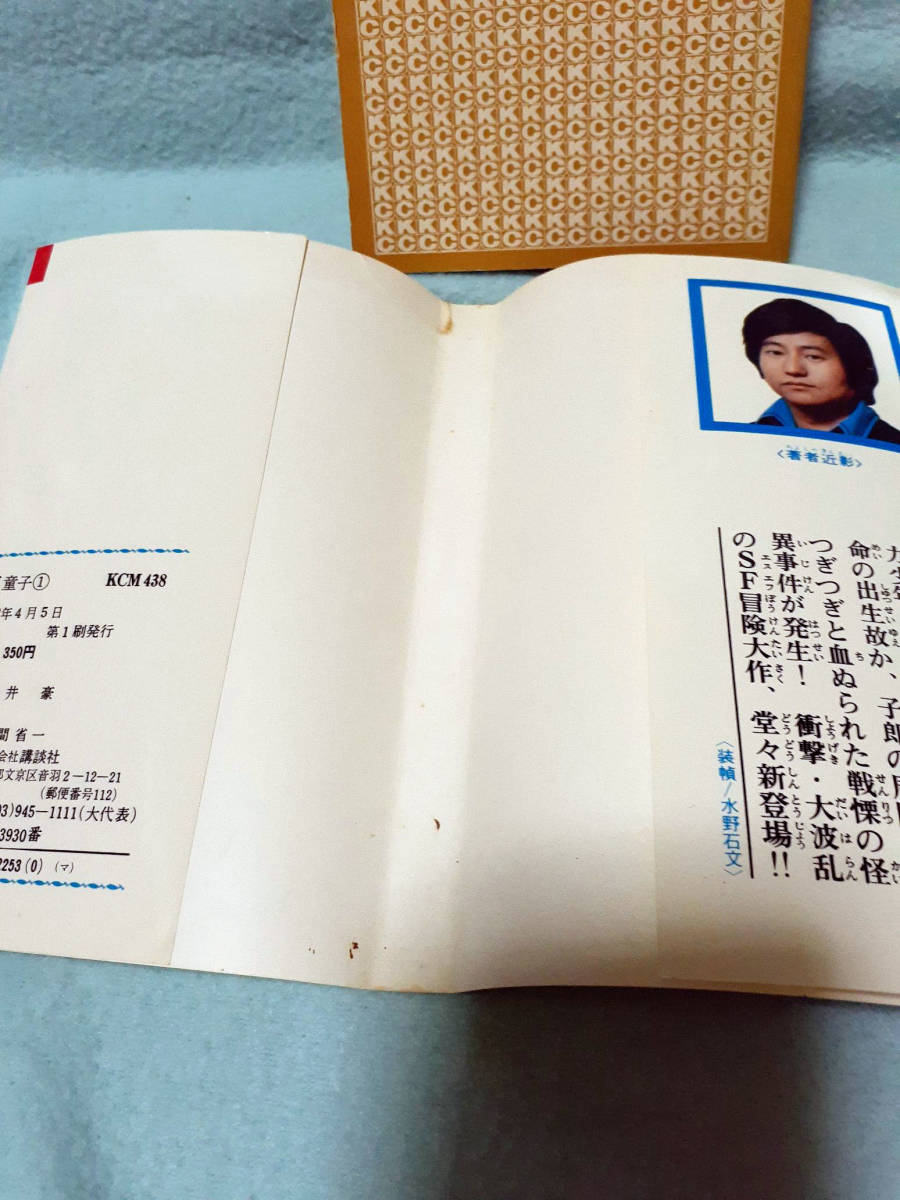 〈著者近影〉
命の出生故か、子郎の
つぎつぎと血ぬられた戦慄の怪
異事件が発生! 衝撃・大波乱
のSF冒険大作、堂々新登場!!
〈装幀/水野石文〉
童子① KCM 438
年4月5日
第1刷発行
350円
井 豪
間省一
会社講談社
文京区音羽2-12-21
(郵便番号112)
03)945-1111(大代表)
3930番
2253(0) (マ)